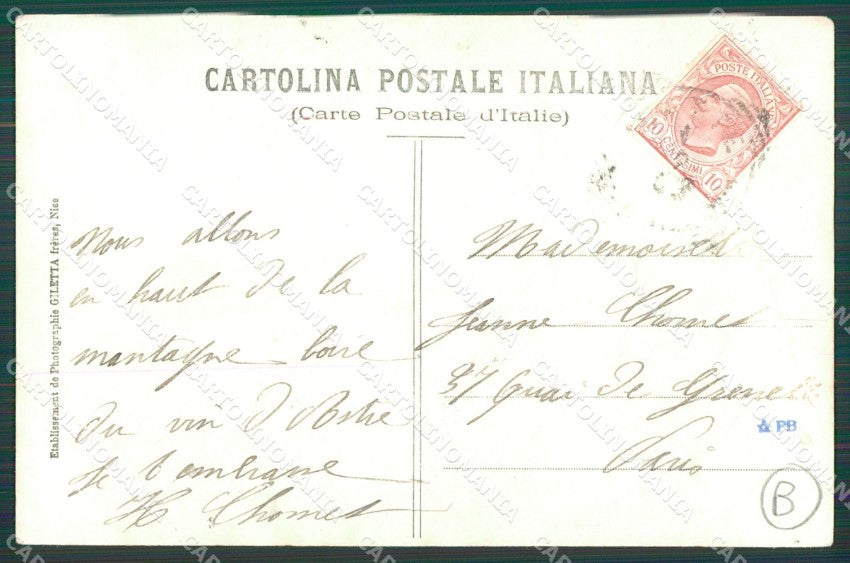 CARTOLINA POSTALE ITALIANA
(Carte Postale d'Italie)
POSTE ITALIANE
10 CENTESIMI 10
Etablissement de Photographie GILETTA frères, Nice
Nous allons
en haut de la
montagne boire
du vin d'Astie
Je t'embrasse
H Chomet
Mademoiselle
Jeanne Chomet
37 Quai de Grenelle
Paris
PB
B
CARTOLINOMANIA